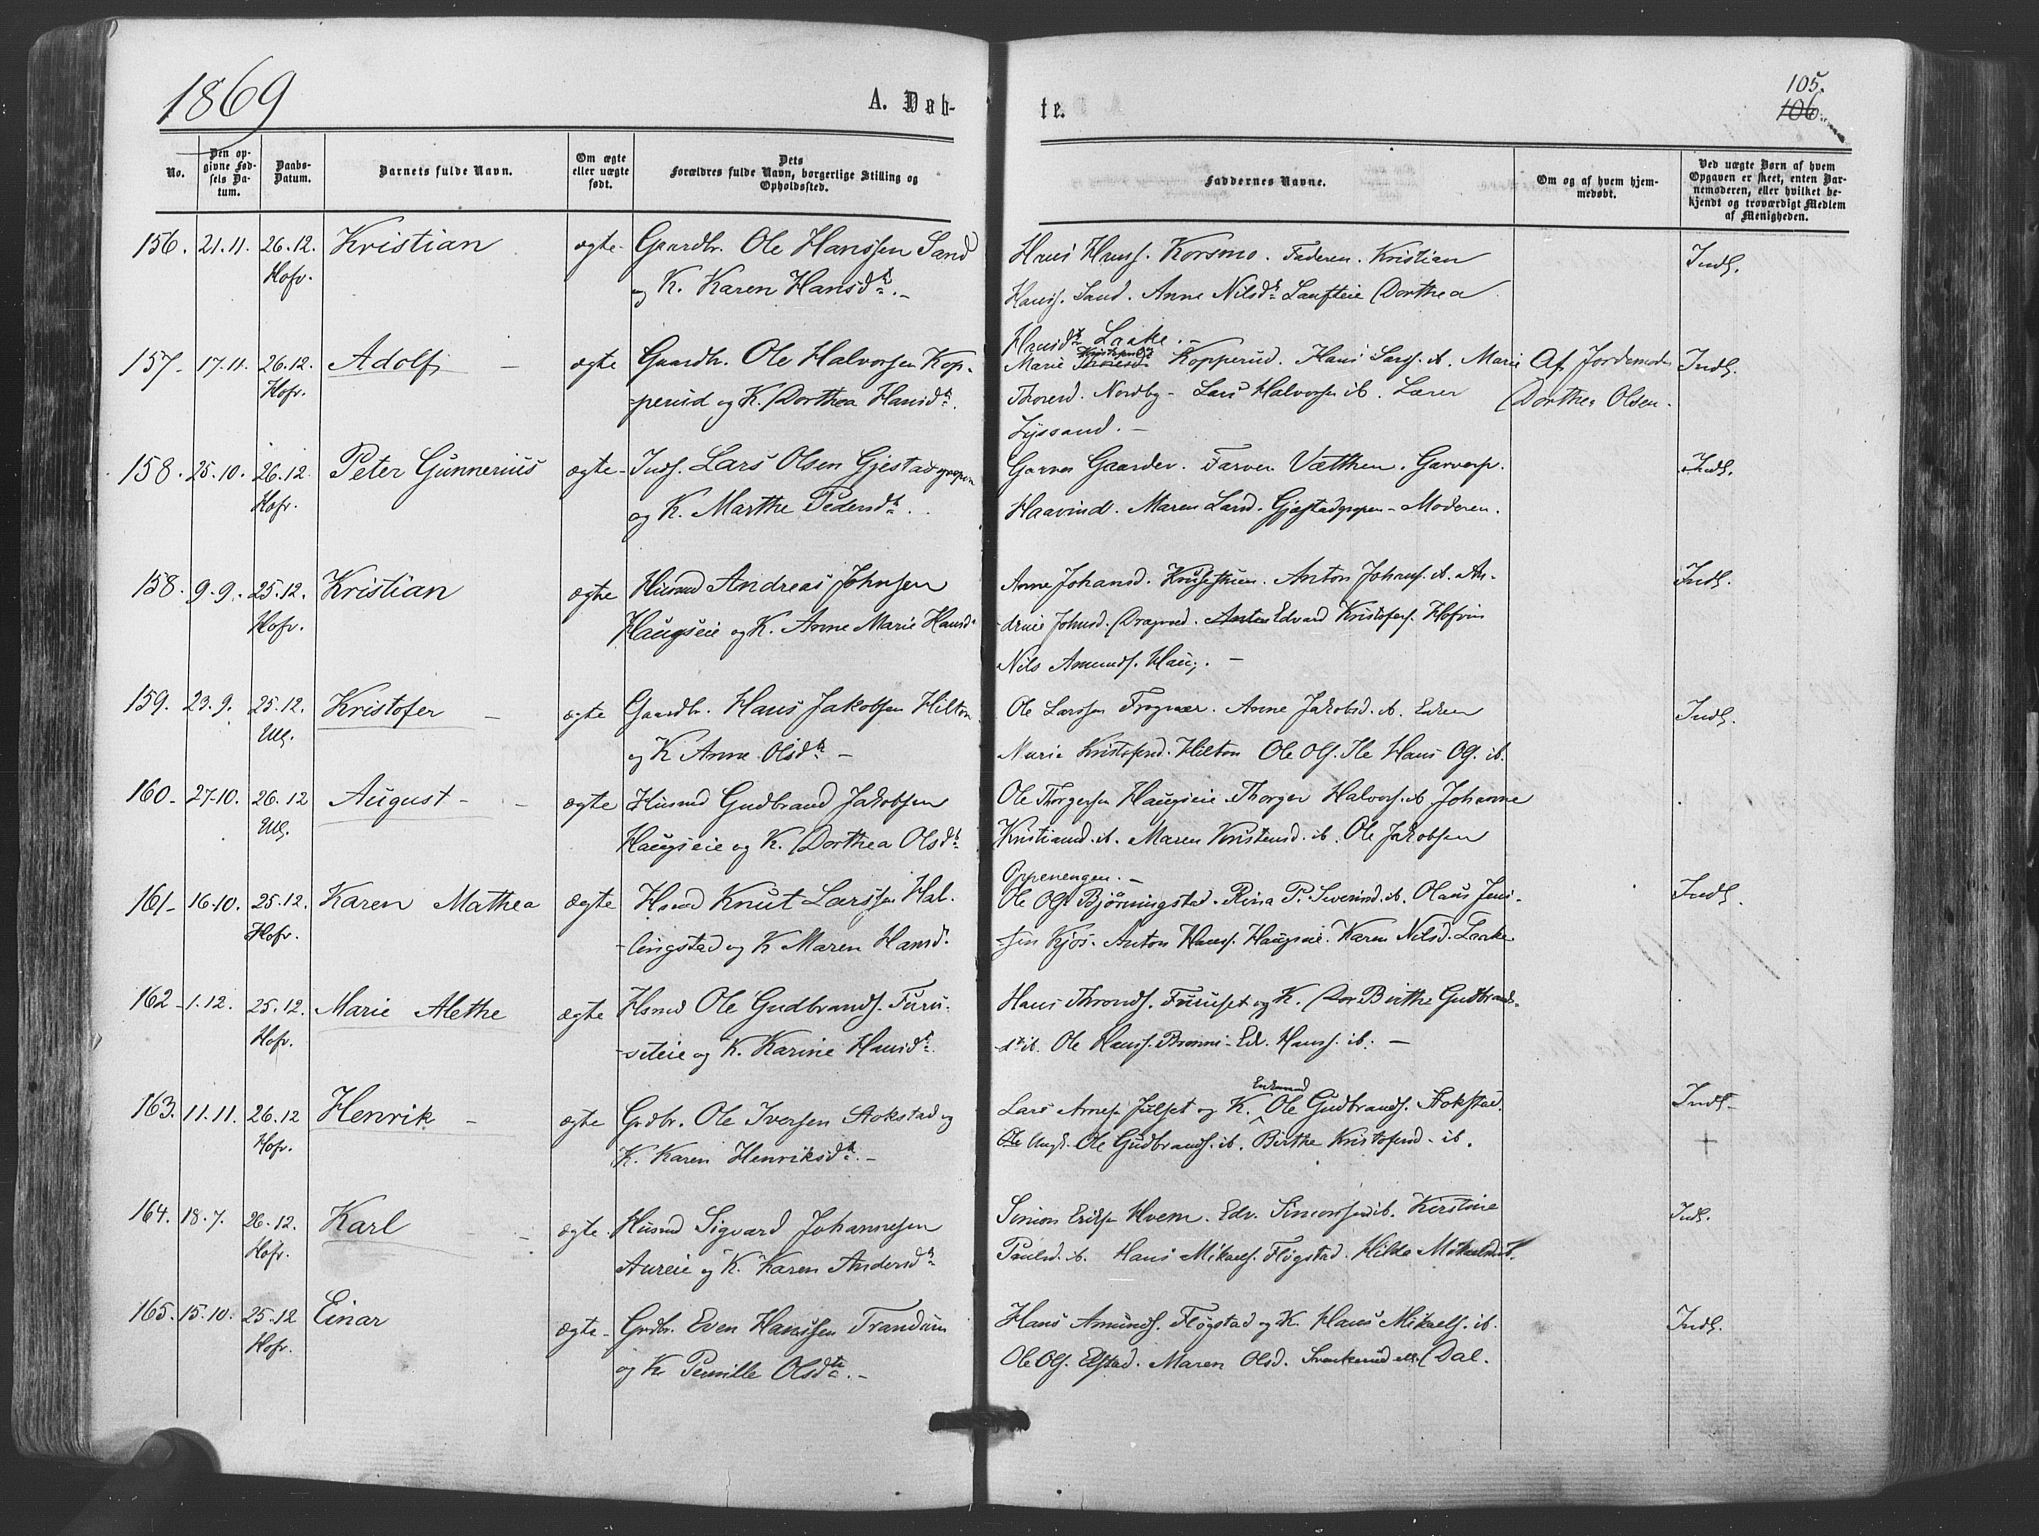 1869
A. Døb-
te.
105.
106.
No.
Den op-
givne Fød-
sels Da-
tum.
Daabs-
Datum.
Barnets fulde Navn.
Om ægte
eller uægte
født.
Dets
Forældres fulde Navn, borgerlige Stilling og
Opholdssted.
Faddernes Navne.
Om og af hvem hjem-
medøbt.
Ved uægte Børn af hvem
Opgaven er skeet, enten Bar-
nemoderen, eller hvilket be-
kjendt og troværdigt Medlem
af Menigheden.
156. 21.11. 26.12. Kristian ægte- Gaardbr. Ole Hanssen Sand
Hofv. og K. Karen Hansdtr. -
Hans Hanss. Korsmo. Faderen. Kristian Indl.
Hanss. Sand. Anne Nilsdtr Dorthea
Hansdtr Laake. -
157- 17.11. 26.12. Adolf - ægte Gaardbr. Ole Halvorsen Kop-
Hofv. -perud og K. Dorthea Hansdtr.
Marie Kopperud. Hans Larss. ib. Marie Af Jordemod. Indl.
Thoresd. Nordby - Lars Halvorsen ib. Lærer Dorthea Olsen.
Lyssand. -
158. 25.10. 26.12. Peter Gunnerius ægte- Inds. Lars Olsen Gjestad
Hofv. og K. Marthe Pedersdtr.
Garver Gaarder. Farver Garversv. Indl.
Haavind. Maren Larsd. - Moderen.
158. 9.9. 25.12. Kristian ægte Husmd Andreas Johnsen
Hofv. Haugseie og K. Anne Marie Hansd.
Anne Johansd. Anton Johans. ib. An- Indl.
-drine Johnsd. Dragvod. Edvard Kristofers. Hofvin
Nils Amunds. Haug. -
159. 23.9. 25.12. Kristofer - ægte Gaardbr. Hans Jakobsen Hilton
Ull. og K Anne Olsdtr -
Ole Larssen Frogner. Anne Jakobsd. ib. Enken Indl.
Marie Kristofersd. Hilton Ole Ols. Ile Hans Ols. ib.
160- 27.10. 26.12 August - - ægte Husmd Gudbrand Jakobsen
Ull. Haugseie og K. Dorthea Olsdtr
Ole Thorgersen Haugseie. Thorger Halvors. ib. Johanne
Kristiansd. ib. Maren Kristensd. ib. Ole Jakobsen
Oppenengen. -
161- 16.10. 25.12. Karen Mathea ægte Hsmd Knut Larssen Hal-
Hofv. -lingstad og K Maren Hansd.
Ole Ols. Bjørningstad. Rina P. Siverind. ib. Olaus Jen- Indl.
-sen Kjos. Anton Hanss. Haugseie. Karen Nilsd. Laake
162- 1.12. 25.12. Marie Alethe ægte Hsmd Ole Gudbrands. Furu-
Hofv. -seteie og K. Karine Hansdtr.
Hans Thronds. Furuset og K. Berthe Gudbrands-
dtr ib. Ole Hanss. Edv. Hanss. ib. -
163. 11.11. 26.12 Henrik - ægte Grdbr. Ole Iversen Aokstad og
Hofv. K. Karen Henriksdtr. -
Enkemand
Lars Arnes. Julset og K. Ole Gudbrands. Aokstad. Indl-
Ungk. Ole Gudbrands. ib. Birthe Kristofersd. ib. +
164. 18.7. 26.12. Karl - ægte- Husmd Sigvard Johannesen
Hofv. Aureie og K. Karen Andersdtr
Simon Eriksen Hvem. Edv. Simonssen ib. Kirstine Indl.
Paulsd. ib. Hans Mikaels. Flogstad. Hilda Mikaelsd ib.
165. 15.10. 25.12 Einar ægte- Grdbr. Even Hanssen Trandum
Hofv. og K. Pernille Olsdtr. -
Hans Amunds. Flogstad og K. Hans Mikaels. ib. Indl.
Ole Ols. Elstad. Maren Olsd. Dal.